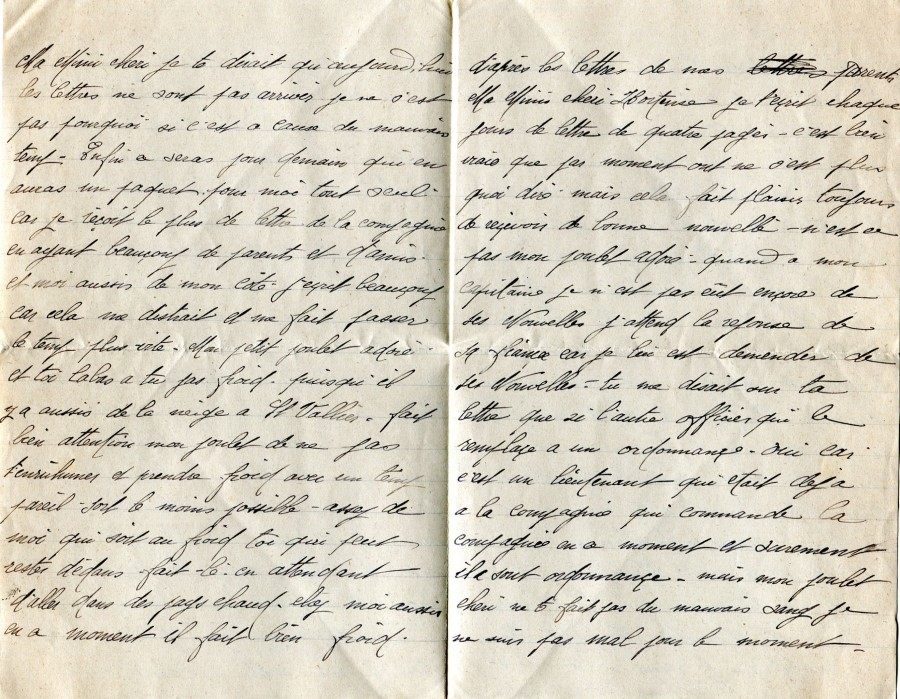 Ma Mimi cheri je te dirait qu'aujourd'hui
les lettres ne sont pas arriver je ne s'est
pas pourquoi si c'est a cause du mauvais
temp - Enfin a seras pour demain qui en
auras un paquet pour moi tout seul
car je reçoit le plus de lettre de la compagnie
en ayant beaucoup de parents et d'amis
et moi aussis de mon côté j'ecrit beaucoup
car cela me distrait et me fait passer
le temp plus vite. Mon petit poulet adoré
et toi labas a tu pas froid - puisqu'il
y a aussis de la neige a St Vallier - fait
bien attention mon poulet de ne pas
t'enrihumes et prendre froid avec un temp
pareil - sort le moins possible - assez de
moi qui soit au froid toi qui peut
restes dedans - fait - le - en attendant
d'aller dans des pays chaud - chez moi aussis
en a moment il fait bien froid.
d'après les lettres de mes parents
Ma Mimis cheri Hortense je t'ecrit chaque
jours de lettre de quatre pages - c'est bien
vraie que par moment ont ne s'est plus
quoi dire mais cela fait plaisir toujours
de reçevoir de bonne nouvelle - n'est ce
pas mon poulet adoré - quand a mon
capitaine je n'est pas eût encore de
ses Nouvelles j'attend la reponse de
sa fiancé car je lui est demender de
ses Nouvelles - tu me disait sur ta
lettre que si l'autre officier qui le
remplaçe a un ordonnançe - oui car
c'est un lieutenant qui etait deja
a la compagnie qui commande la
compagnie en a moment et surement
il a sont ordonnançe - mais mon poulet
cheri ne te fait pas du mauvais sang je
ne suis pas mal pour le moment -